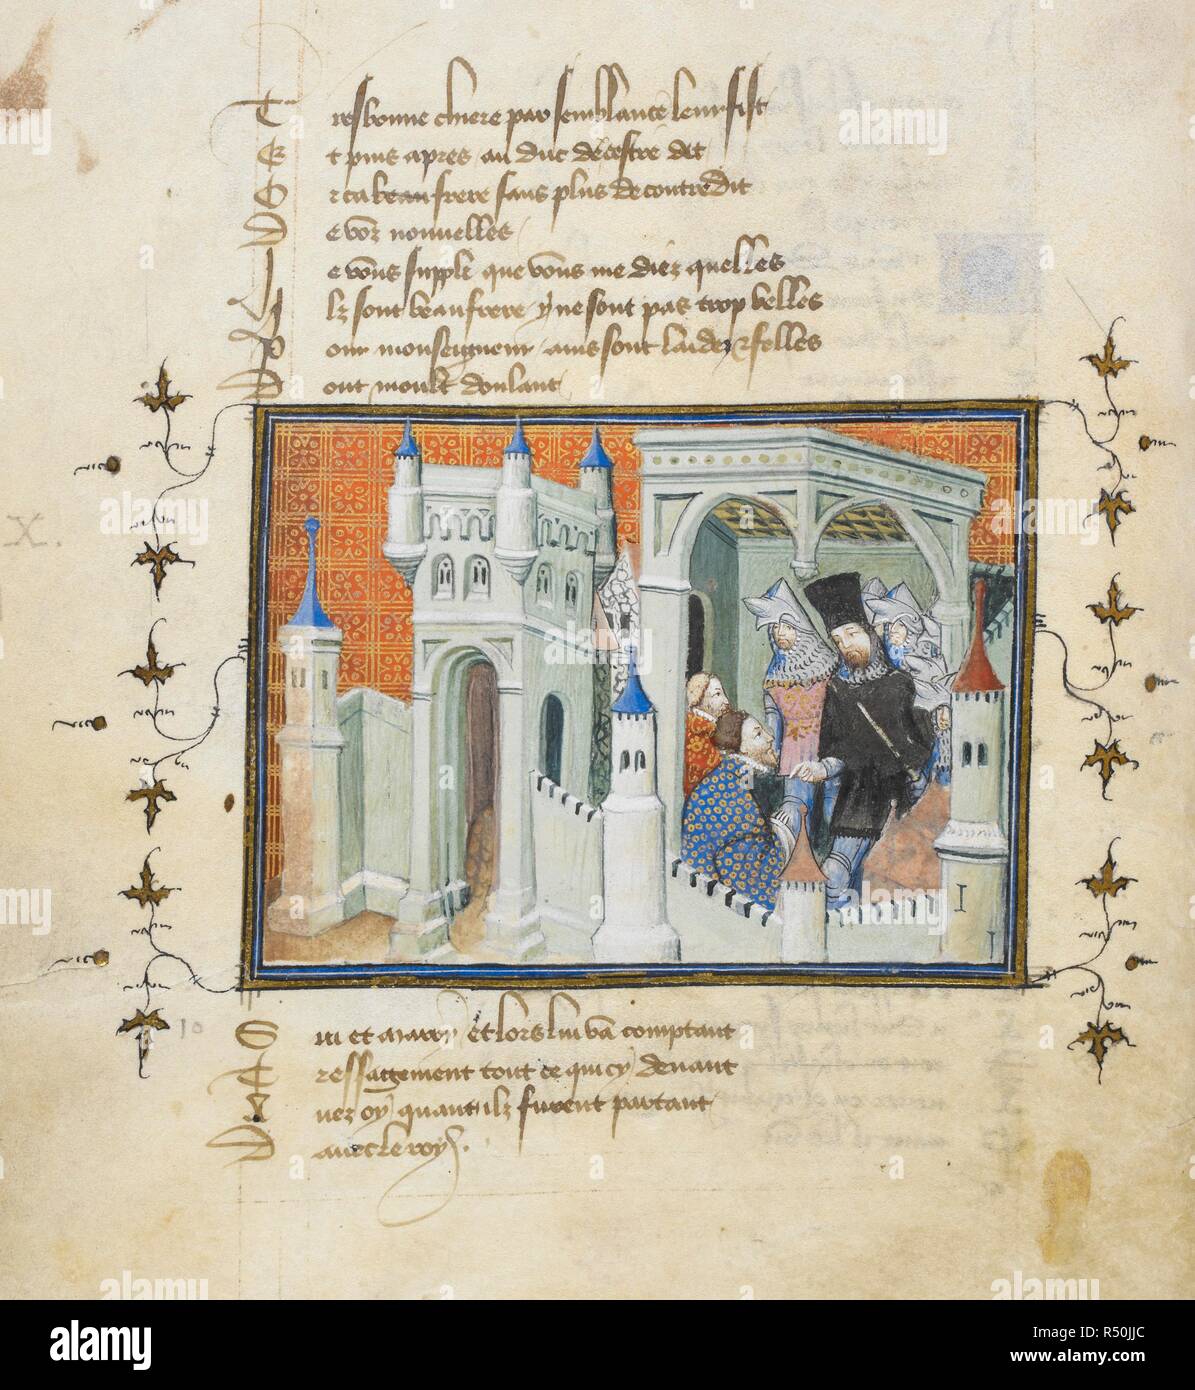 Tresbonne chiere par semblance leur fist
Et puis apres au duc dexcestre dit
Orca beaufrere sans plus de contredit
De voz nouuelles
Je vous supplie que vous me diez quelles
Ilz sont beaufrere y ne sont pas trop belles
Pour monseigneur ains sont laides & felles
Dont moult doulant
Sui et marry et lors lui va comptant
Tressagement tout ce quicy deuant
Auez oy quant ilz furent partant
Dauec le roy
X.
10
I
I
alamy
a
Image ID: R50JJC
www.alamy.com